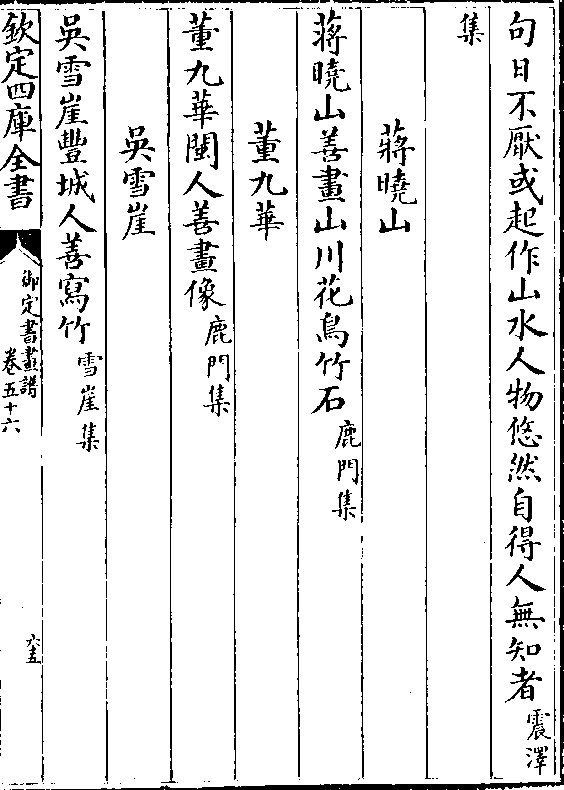 句日不厭或起作山水人物悠然自得人無知者震澤
集
蔣曉山
蔣曉山善畫山川花鳥竹石鹿門集
董九華
董九華閩人善畫像鹿門集
吳雪崖
吳雪崖豐城人善寫竹雪崖集
欽定四庫全書
御定書畫譜
卷五十六
六五